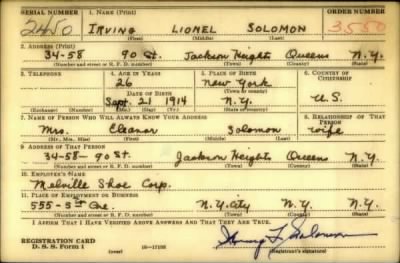 SERIAL NUMBER 1. NAME (Print) ORDER NUMBER
2450 IRVING LIONEL SOLOMON 3550
(First) (Middle) (Last)
2. ADDRESS (Print)
34-58 90 St. Jackson Heights Queens N.Y.
(Number and street or R. F. D. number) (Town) (County) (State)
3. TELEPHONE 4. AGE IN YEARS 5. PLACE OF BIRTH 6. COUNTRY OF CITIZENSHIP
26 New York
DATE OF BIRTH (Town or county)
Sept. 21 1914 N.Y. U.S.
(Exchange) (Number) (Mo.) (Day) (Yr.) (State or country)
7. NAME OF PERSON WHO WILL ALWAYS KNOW YOUR ADDRESS 8. RELATIONSHIP OF THAT PERSON
Mrs. Eleanor Solomon Wife
(Mr., Mrs., Miss) (First) (Middle) (Last)
9. ADDRESS OF THAT PERSON
34-58-90 St. Jackson Heights Queens N.Y.
(Number and street or R. F. D. number) (Town) (County) (State)
10. EMPLOYER'S NAME
Melville Shoe Corp.
11. PLACE OF EMPLOYMENT OR BUSINESS
555-5th Ave. N.Y.City N.Y. N.Y.
(Number and street or R. F. D. number) (Town) (County) (State)
I AFFIRM THAT I HAVE VERIFIED ABOVE ANSWERS AND THAT THEY ARE TRUE.
REGISTRATION CARD
D. S. S. Form 1 (over) 16-17105 (Registrant's signature)